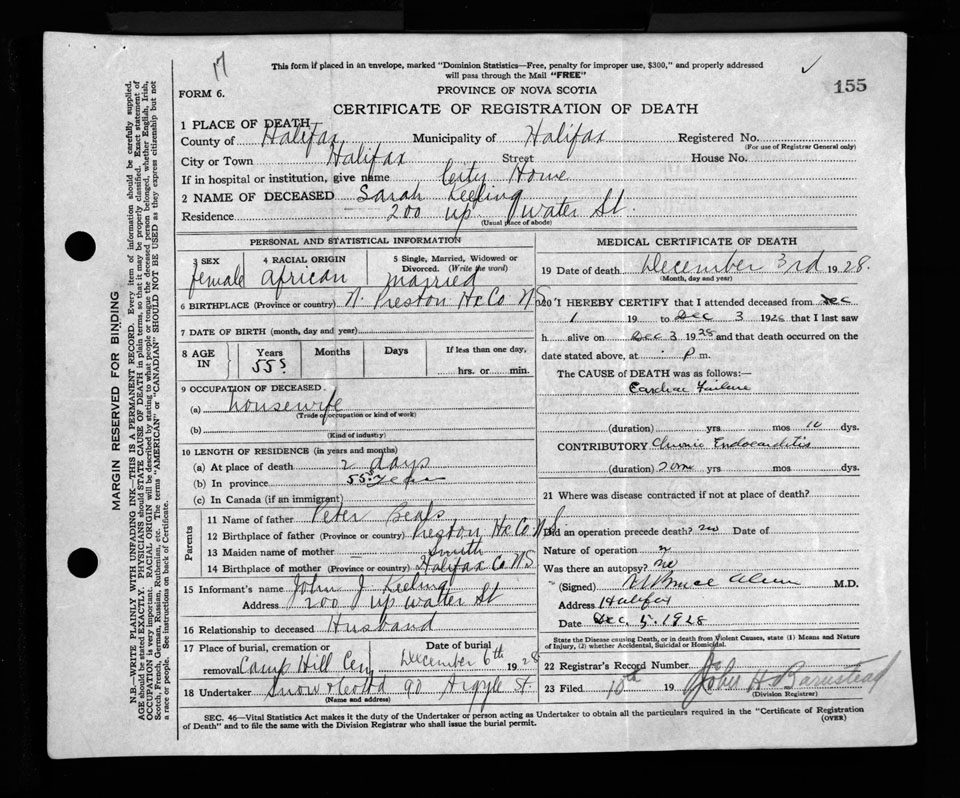 17
This form if placed in an envelope, marked "Dominion Statistics—Free, penalty for improper use, $300," and properly addressed
will pass through the Mail "FREE"
155
FORM 6.
PROVINCE OF NOVA SCOTIA
CERTIFICATE OF REGISTRATION OF DEATH
1 PLACE OF DEATH
County of Halifax Municipality of Halifax Registered No.
(For use of Registrar General only)
City or Town Halifax Street House No.
If in hospital or institution, give name City Home
2 NAME OF DECEASED Sarah Keeling
Residence 200 up Water St.
(Usual place of abode)
PERSONAL AND STATISTICAL INFORMATION
3 SEX 4 RACIAL ORIGIN 5 Single, Married, Widowed or
Divorced. (Write the word)
female african married
6 BIRTHPLACE (Province or country) N. Preston Hx Co NS
7 DATE OF BIRTH (month, day and year)
8 AGE IN Years Months Days If less than one day,
55 hrs. or min.
9 OCCUPATION OF DECEASED
(a) housewife
(Trade of occupation or kind of work)
(b)
(Kind of industry)
10 LENGTH OF RESIDENCE (in years and months)
(a) At place of death 2 days
(b) In province 55 years
(c) In Canada (if an immigrant)
Parents
11 Name of father Peter Beals
12 Birthplace of father (Province or country) Preston Hx Co N S
13 Maiden name of mother — Smith
14 Birthplace of mother (Province or country) Halifax Co NS
15 Informant's name John J Keeling
Address 200 up water St
16 Relationship to deceased Husband
17 Place of burial, cremation or Date of burial
removal Camp Hill Cem December 6th 1928
18 Undertaker Snow & Co Ltd 90 Argyle St.
(Name and address)
MEDICAL CERTIFICATE OF DEATH
19 Date of death December 3rd 1928.
(Month, day and year)
20 I HEREBY CERTIFY that I attended deceased from Dec
1 19 to Dec 3 1928 that I last saw
h alive on Dec 3 1928 and that death occurred on the
date stated above, at P m.
The CAUSE of DEATH was as follows:—
Cardiac Failure
(duration) yrs. mos 10 dys.
CONTRIBUTORY Chronic Endocarditis
(duration) yrs mos dys.
21 Where was disease contracted if not at place of death?
Did an operation precede death? no Date of
Nature of operation
Was there an autopsy? no
(Signed) M.D.
Address Halifax
Date Dec 5. 1928
State the Disease causing Death, or in death from Violent Causes, state (1) Means and Nature
of Injury, (2) whether Accidental, Suicidal or Homicidal.
22 Registrar's Record Number
23 Filed 10th 19 H Barnstead
(Division Registrar)
SEC. 46—Vital Statistics Act makes it the duty of the Undertaker or person acting as Undertaker to obtain all the particulars required in the "Certificate of Registration
of Death" and to file the same with the Division Registrar who shall issue the burial permit.
(OVER)
MARGIN RESERVED FOR BINDING
N.B.—WRITE PLAINLY WITH UNFADING INK—THIS IS A PERMANENT RECORD. Every item of information should be carefully supplied.
AGE should be stated EXACTLY. PHYSICIANS should STATE CAUSE OF DEATH in plain terms, so that it may be properly classified. Exact statement of
OCCUPATION is very important. RACIAL ORIGIN will be described by stating to what people or tongue the deceased person belonged, whether English, Irish,
Scotch, French, German, Russian, Ruthenian, etc. The terms "AMERICAN" or "CANADIAN" SHOULD NOT BE USED as they express citizenship but not
a race or people. See instructions on back of Certificate.